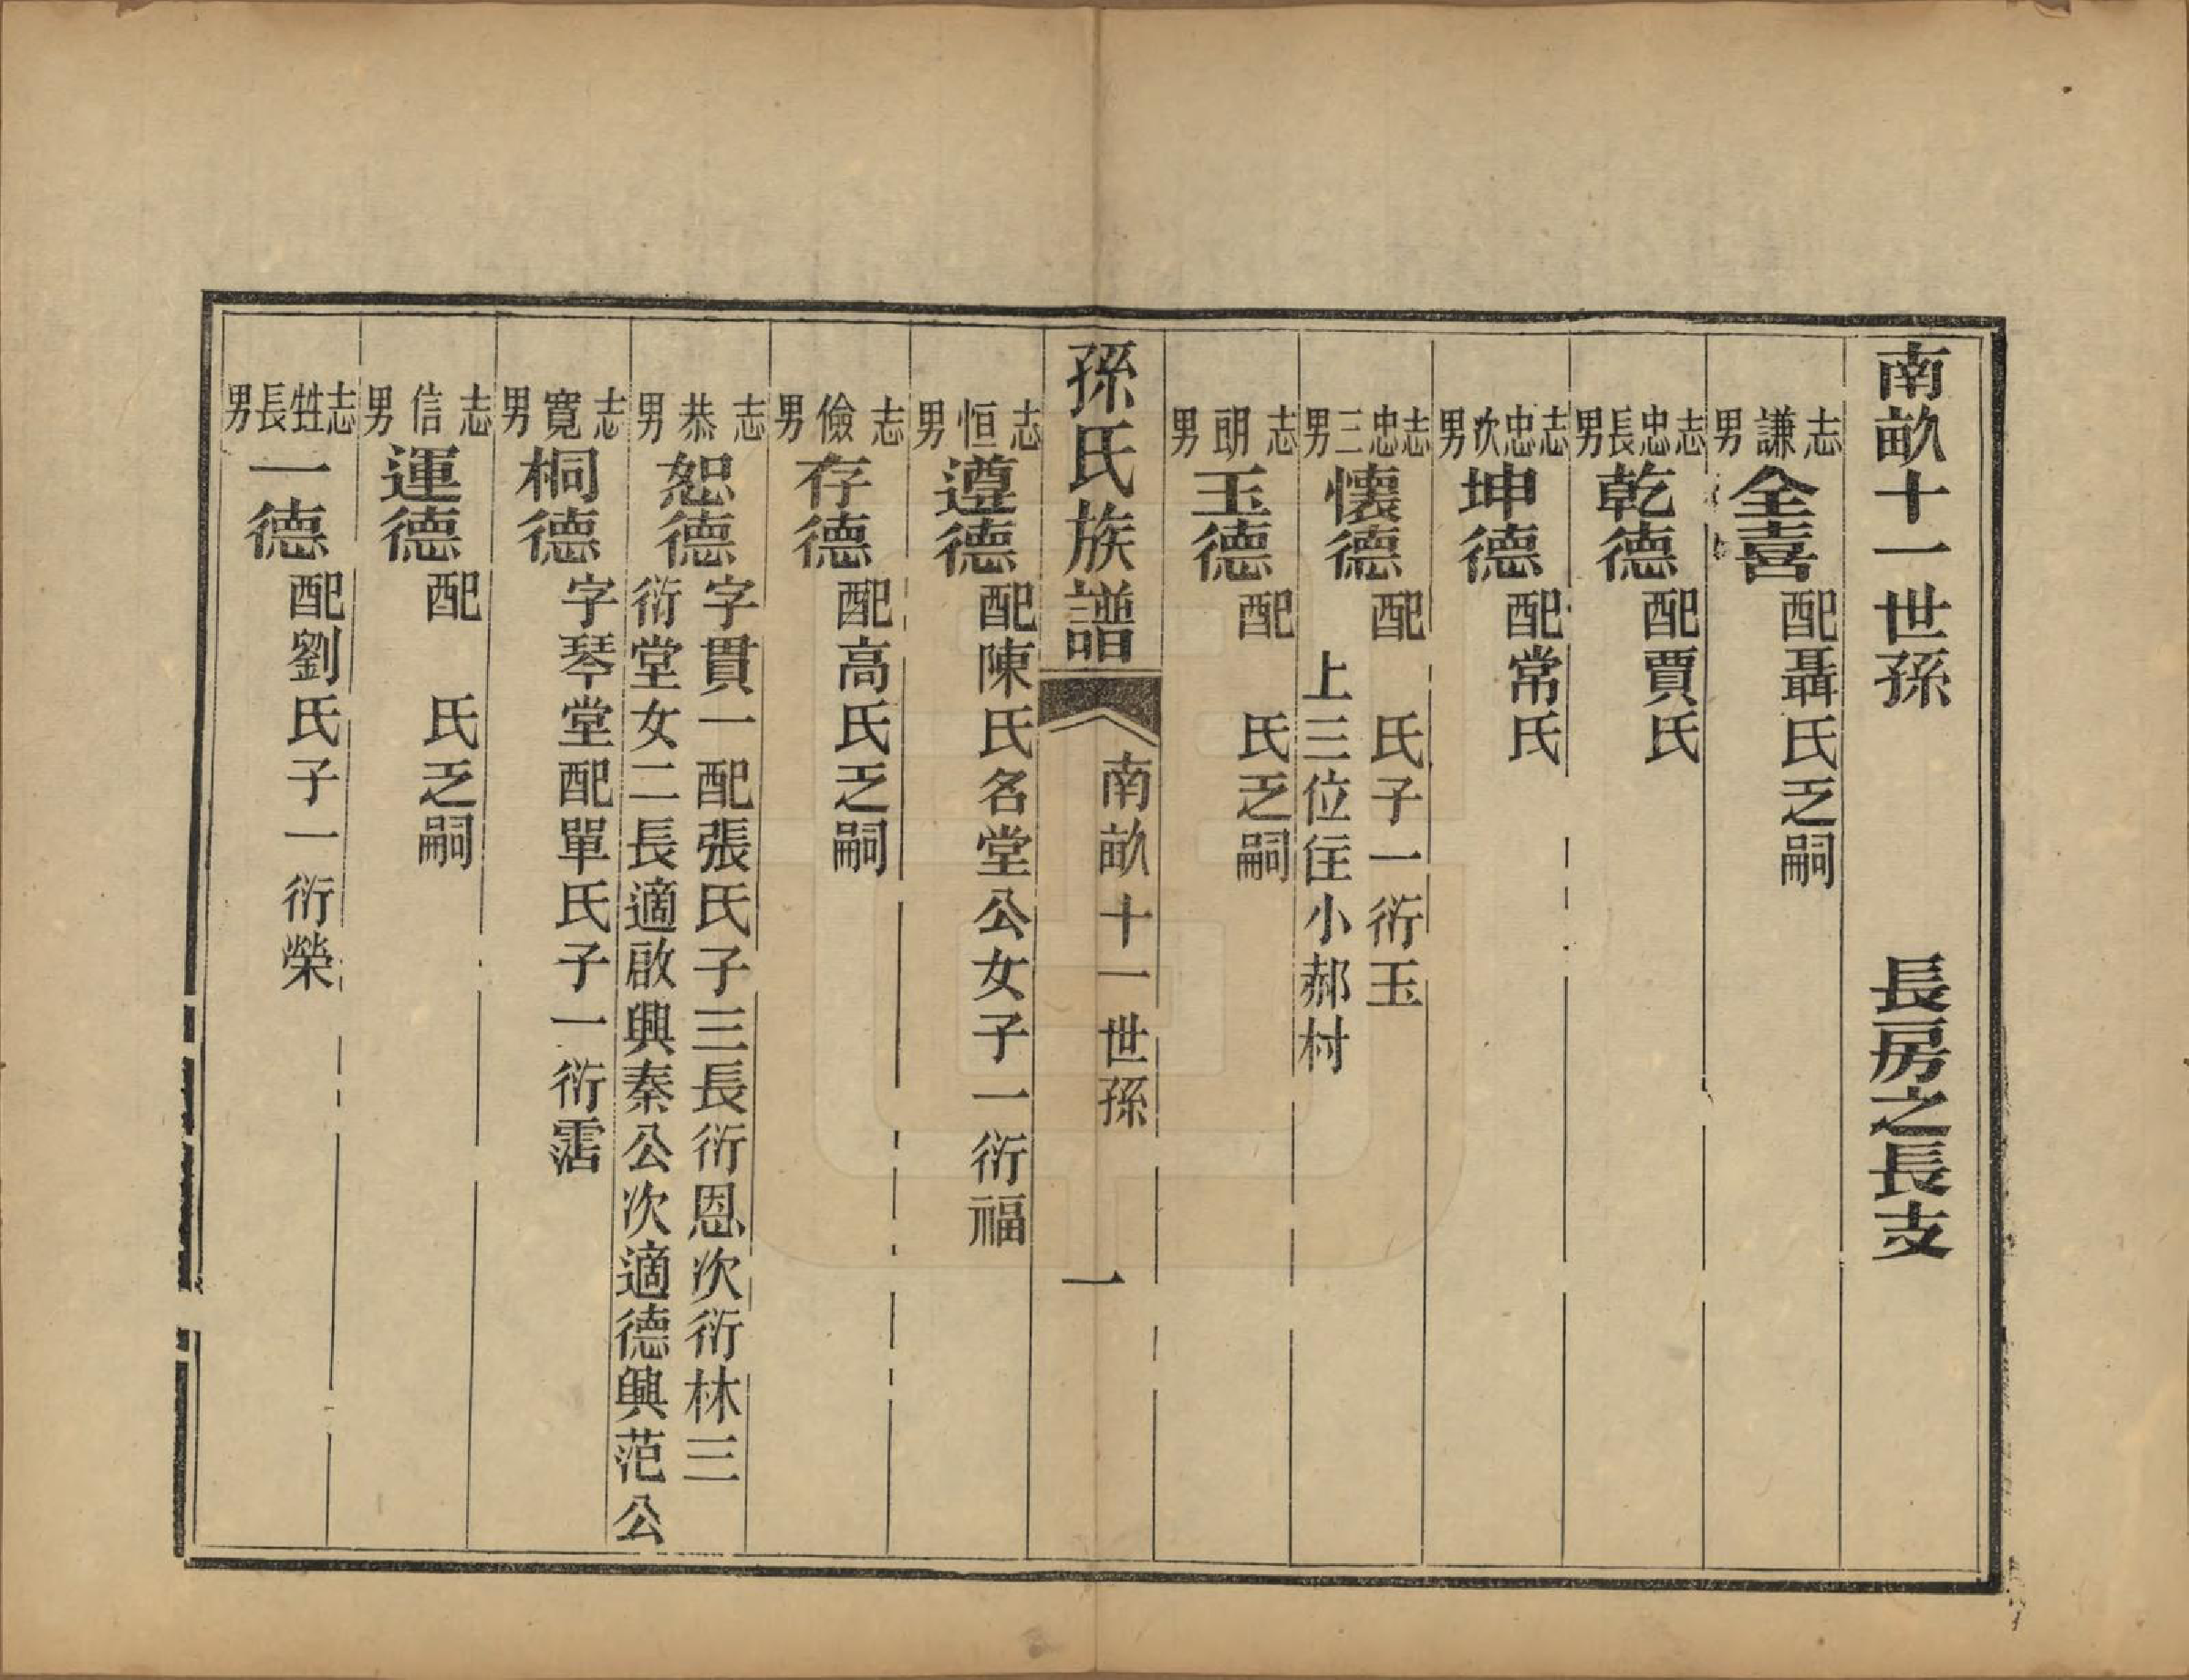 南畝十一世孫 長房之長支
志謙男 全喜 配聶氏乏嗣
志忠長男 乾德 配賈氏
志忠次男 坤德 配常氏
志忠三男 懷德 配 氏子一衍玉
上三位住小郝村
志明男 玉德 配 氏乏嗣
孫氏族譜 南畝十一世孫 一
志恒男 遵德 配陳氏名堂公女子一衍福
志儉男 存德 配高氏乏嗣
志恭男 恕德 字貫一配張氏子三長衍恩次衍林三
衍堂女二長適啟興秦公次適德興范公
志寬男 桐德 字琴堂配單氏子一衍霑
志信男 運德 配 氏乏嗣
志甡長男 一德 配劉氏子一衍榮